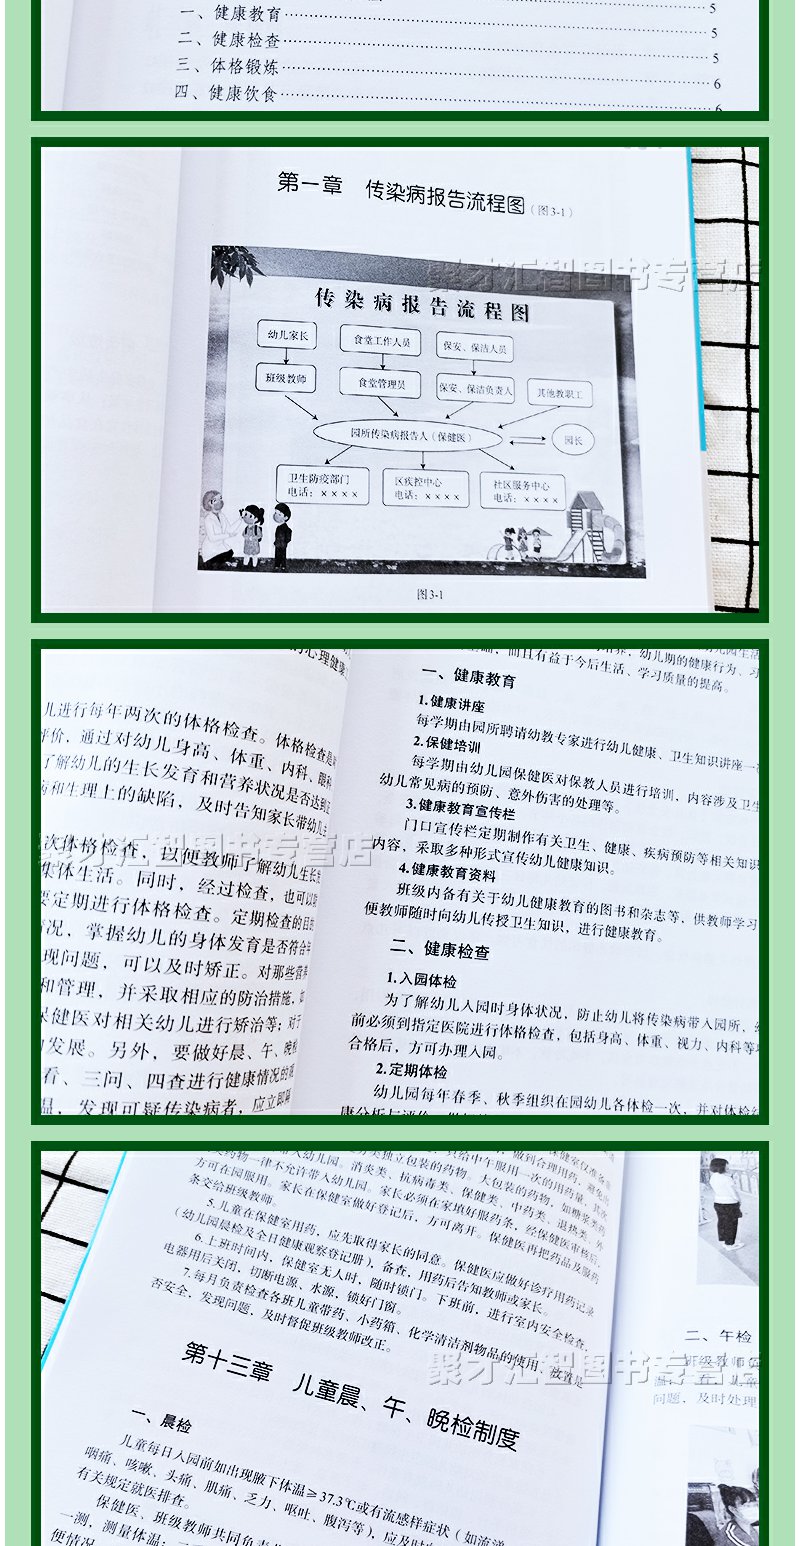 5
一、健康教育 5
二、健康检查 5
三、体格锻炼 6
四、健康饮食 6
第一章 传染病报告流程图(图3-1)
聚才汇智图书专营店
传染病报告流程图
幼儿家长
食堂工作人员
保安、保洁人员
班级教师
食堂管理员
保安、保洁负责人
其他教职工
园所传染病报告人(保健医)
园长
卫生防疫部门
电话:××××
区疾控中心
电话:××××
社区服务中心
电话:××××
图3-1
心理健康
儿进行每年两次的体格检查。体格检查是
评价,通过对幼儿身高、体重、内科、眼科
了解幼儿的生长发育和营养状况是否达到正
病和生理上的缺陷,及时告知家长带幼儿
次体格检查,以便教师了解幼儿生长发
集体生活。同时,经过检查,也可以
要定期进行体格检查。定期检查的目的
情况,掌握幼儿的身体发育是否符合
现问题,可以及时矫正。对那些营养
和管理,并采取相应的防治措施,如
保健医对相关幼儿进行矫治等;对于
发展。另外,要做好晨、午、晚检
看、三问、四查进行健康情况的
温,发现可疑传染病者,应立即
聚才汇智图书专营店
而且有益于今后生活、学习质量的提高。
幼儿期的健康行为、习
一、健康教育
1.健康讲座
每学期由园所聘请幼教专家进行幼儿健康、卫生知识讲座一
2.保健培训
每学期由幼儿园保健医对保教人员进行培训,内容涉及卫生
幼儿常见病的预防、意外伤害的处理等。
3.健康教育宣传栏
门口宣传栏定期制作有关卫生、健康、疾病预防等相关知识
内容,采取多种形式宣传幼儿健康知识。
4.健康教育资料
班级内备有关于幼儿健康教育的图书和杂志等,供教师学习
便教师随时向幼儿传授卫生知识,进行健康教育。
二、健康检查
1.入园体检
为了解幼儿入园时身体状况,防止幼儿将传染病带入园所,
前必须到指定医院进行体格检查,包括身高、体重、视力、内科等
合格后,方可办理入园。
2.定期体检
幼儿园每年春季、秋季组织在园幼儿各体检一次,并对体检
康分析与评价
独立包装的药物。大包装的药物,如糖浆类药
药物一律不允许带入幼儿园。消炎类、抗病毒类、保健类、中药类、退热类、外
方可在园服用。家长必须在家填好服药条,经保健医审核后,
条交给班级教师。家长在保健室做好登记后,方可离开。保健医再把药品及服药
5.儿童在保健室用药,应先取得家长的同意。保健医应做好诊疗用药记录
(幼儿园晨检及全日健康观察登记册),备查,用药后告知教师或家长。
6.上班时间内,保健室无人时,随时锁门。下班前,进行室内安全检查,
电器用后关闭,切断电源、水源,锁好门窗。
7.每月负责检查各班儿童带药、小药箱、化学清洁剂物品的使用、放置是
否安全,发现问题,及时督促班级教师改正。
聚才汇智图书专营店
第十三章 儿童晨、午、晚检制度
一、晨检
儿童每日入园前如出现腋下体温≥37.3℃或有流感样症状(如流涕
咽痛、咳嗽、头痛、肌痛、乏力、呕吐、腹泻等),应及时
有关规定就医排查。
保健医、班级教师共同负责
一测,测量体温;
便情况
二、午检
班级教师
问题,及时处理